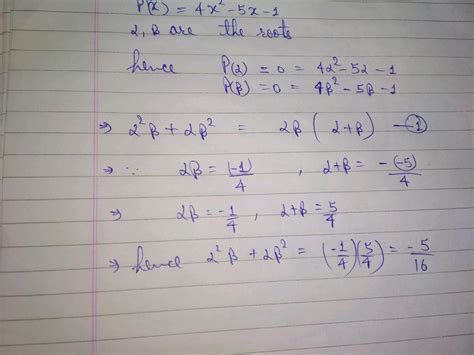 P(x) = 4x² - 5x - 1
α, β are the roots
hence P(α) = 0 = 4α² - 5α - 1
P(β) = 0 = 4β² - 5β - 1
⇒ α²β + αβ² = αβ (α+β) —①
⇒ ∵ αβ = (-1)/4 , α+β = -(-5)/4
⇒ αβ = -1/4 , α+β = 5/4
⇒ hence α²β + αβ² = (-1/4)(5/4) = -5/16